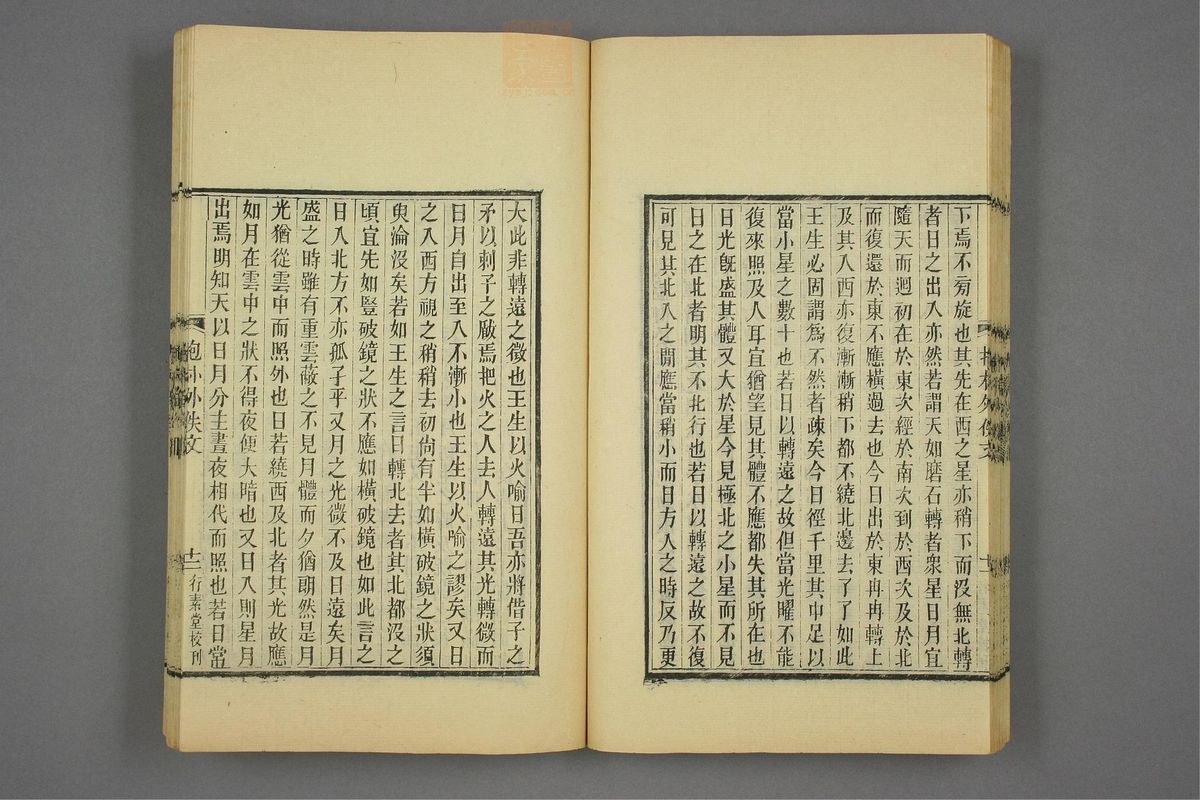 下焉不旁旋也其先在西之星亦稍下而沒無北轉
者日之出入亦然若謂天如磨石轉者衆星日月宜
隨天而迴初在於東次經於南次到於西次及於北
而復還於東不應橫過去也今日出於東冉冉轉上
及其入西亦復漸漸稍下都不繞北邊去了了如此
王生必固謂爲不然者疎矣今日徑千里其中足以
當小星之數十也若日以轉遠之故但當光曜不能
復來照及人耳宜猶望見其體不應都失其所在也
日光旣盛其體又大於星今見極北之小星而不見
日之在北者明其不北行也若日以轉遠之故不復
可見其北入之閒應當稍小而日方入之時反乃更
大此非轉遠之徵也王生以火喻日吾亦將借子之
矛以刺子之厫焉把火之人去人轉遠其光轉微而
日月自出至入不漸小也王生以火喻之謬矣又日
之入西方視之稍稍去初尙有半如橫破鏡之狀須
臾淪沒矣若如王生之言日轉北去者其北都沒之
頃宜先如豎破鏡之狀不應如橫破鏡也如此言之
日入北方不亦孤孑乎又月之光微不及日遠矣月
盛之時雖有重雲蔽之不見月體而夕猶朗然是月
光猶從雲中而照外也日若繞西及北者其光故應
如月在雲中之狀不得夜便大暗也又日入則星月
出焉明知天以日月分主晝夜相代而照也若日當
抱朴外佚文
十二
行素堂校刊